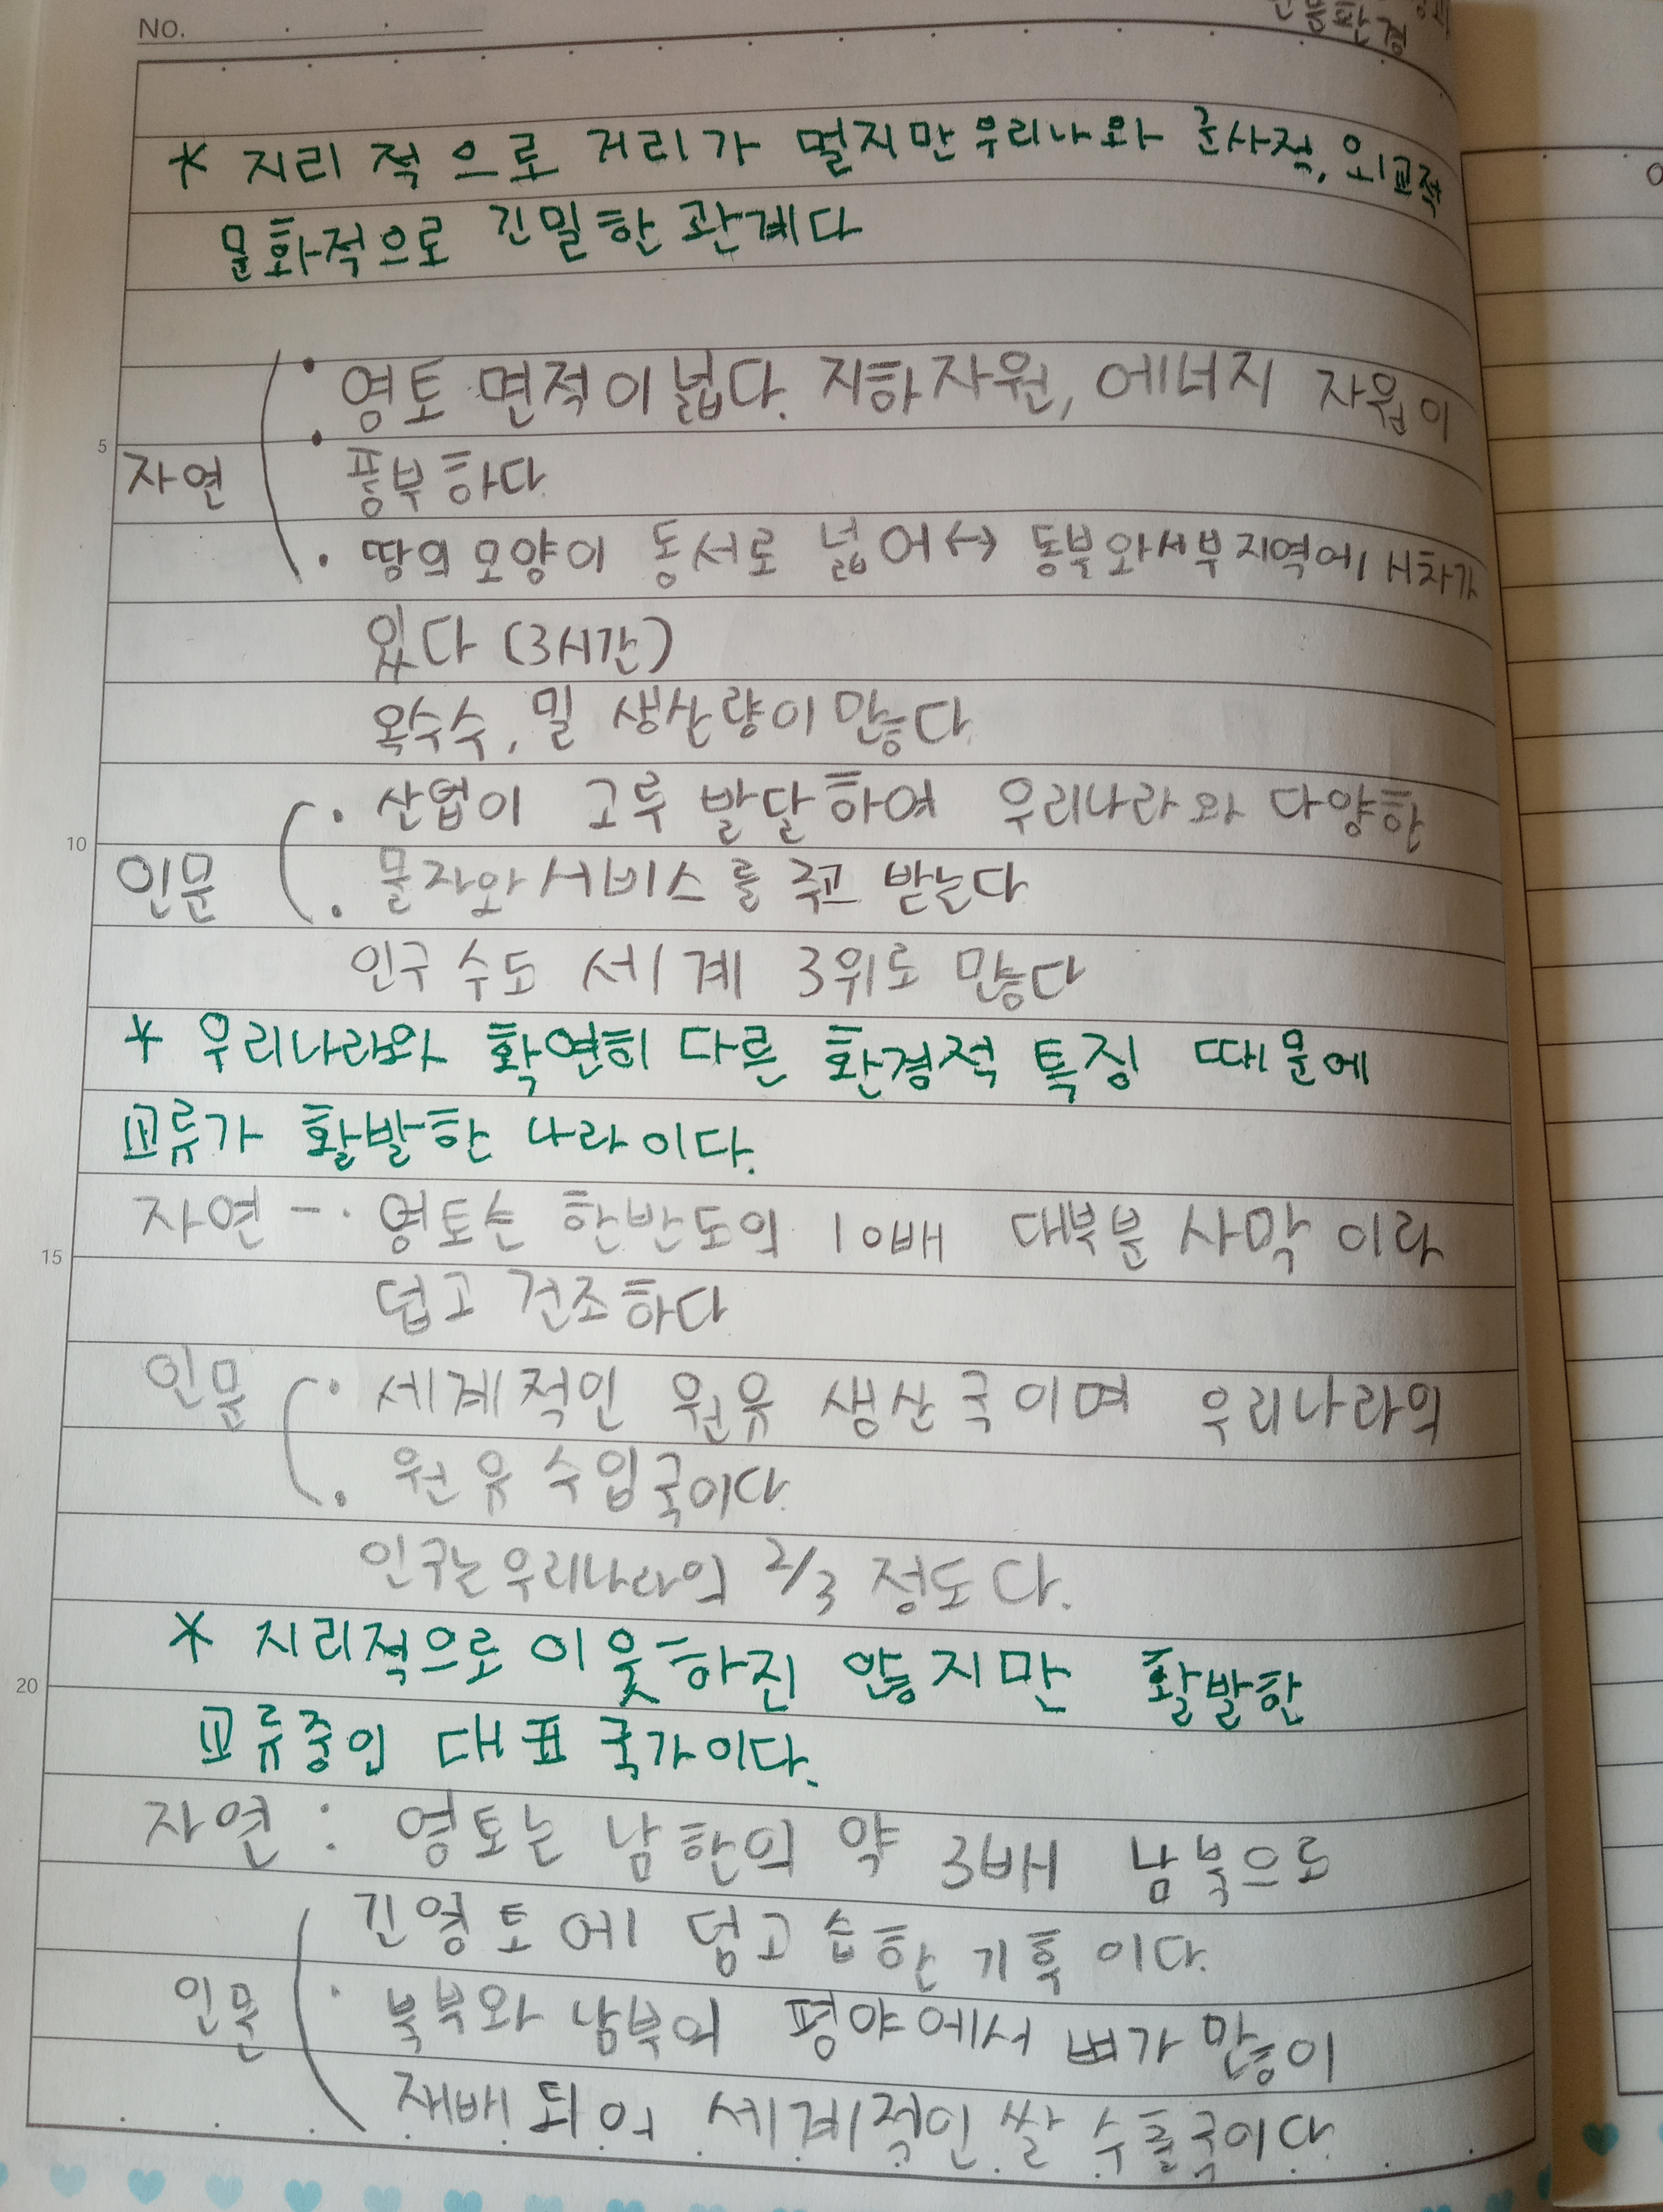 No.
* 지리적으로 거리가 멀지만 우리나와 군사적, 외교적
문화적으로 긴밀한 관계다
• 영토 면적이 넓다. 지하자원, 에너지 자원이
5
자연 • 풍부하다
• 땅의 모양이 동서로 넓어 ↔ 동부와 서부 지역에 시차가
있다 (3시간)
옥수수, 밀 생산량이 많다
• 산업이 고루 발달하여 우리나라와 다양한
10
인문 • 물자와 서비스를 주고 받는다
인구 수도 세계 3위로 많다
* 우리나라와 확연히 다른 환경적 특징 때문에
교류가 활발한 나라이다.
자연 - · 영토는 한반도의 10배 대부분 사막이라
15
덥고 건조하다
인문 • 세계적인 원유 생산국이며 우리나라의
• 원유 수입국이다
인구는 우리나라의 2/3 정도다.
* 지리적으로 이웃하진 않지만 활발한
20
교류중인 대표 국가이다.
자연 : 영토는 남한의 약 3배 남북으로
긴 영토에 덥고 습한 기후이다.
인문 · 북부와 남부의 평야에서 벼가 많이
재배되어 세계적인 쌀 수출국이다